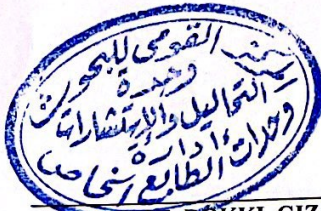 المركز القومى للبحوث
وحدة
التحاليل والإستشارات
إدارة
وحدات الطابع الخاص
DOKKI, GIZ